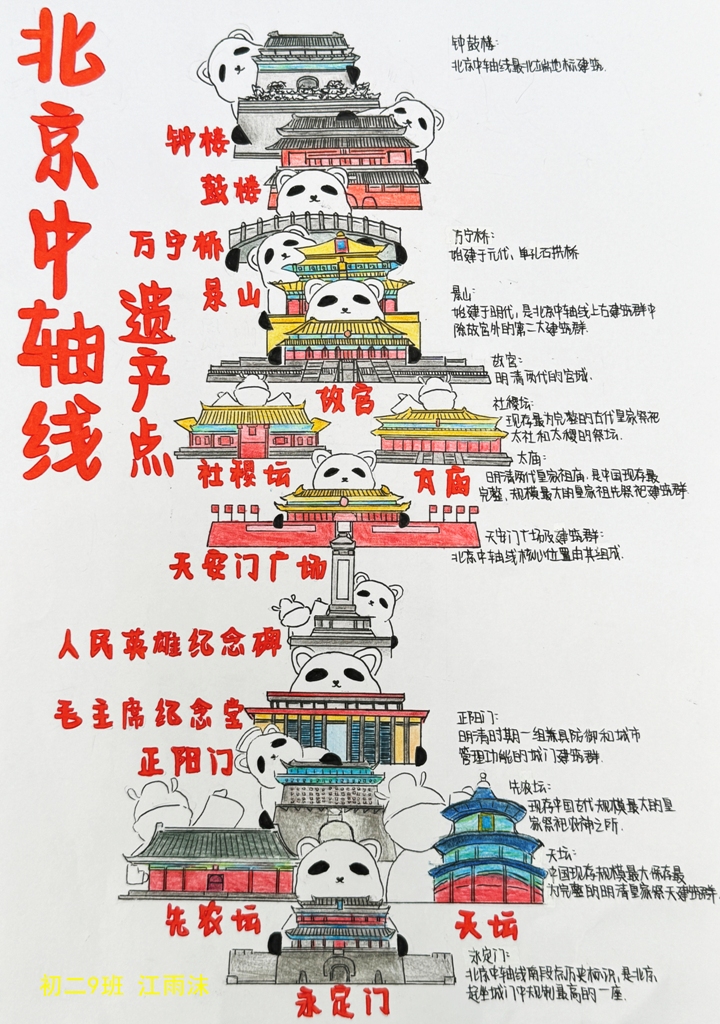 北京中轴线
遗产点
钟楼
鼓楼
万宁桥
景山
故宫
社稷坛
太庙
天安门广场
人民英雄纪念碑
毛主席纪念堂
正阳门
先农坛
天坛
永定门
钟鼓楼:
北京中轴线最北端地标建筑.
万宁桥:
始建于元代,单孔石拱桥
景山:
始建于明代,是北京中轴线上古建筑群中
除故宫外的第二大建筑群.
故宫:
明清两代的宫城.
社稷坛:
现存最为完整的古代皇家祭祀
太社和太稷的祭坛.
太庙:
明清两代皇家祖庙,是中国现存最
完整、规模最大的皇家祖先祭祀建筑群.
天安门广场及建筑群:
北京中轴线核心位置由其组成.
正阳门:
明清时期一组兼具防御和城市
管理功能的城门建筑群.
先农坛:
现存中国古代规模最大的皇
家祭祀农神之所.
天坛:
中国现存规模最大保存最
为完整的明清皇家祭天建筑群.
永定门:
北京中轴线南段点历史标识,是北京
城门中规制最高的一座.
初二9班 江雨沫